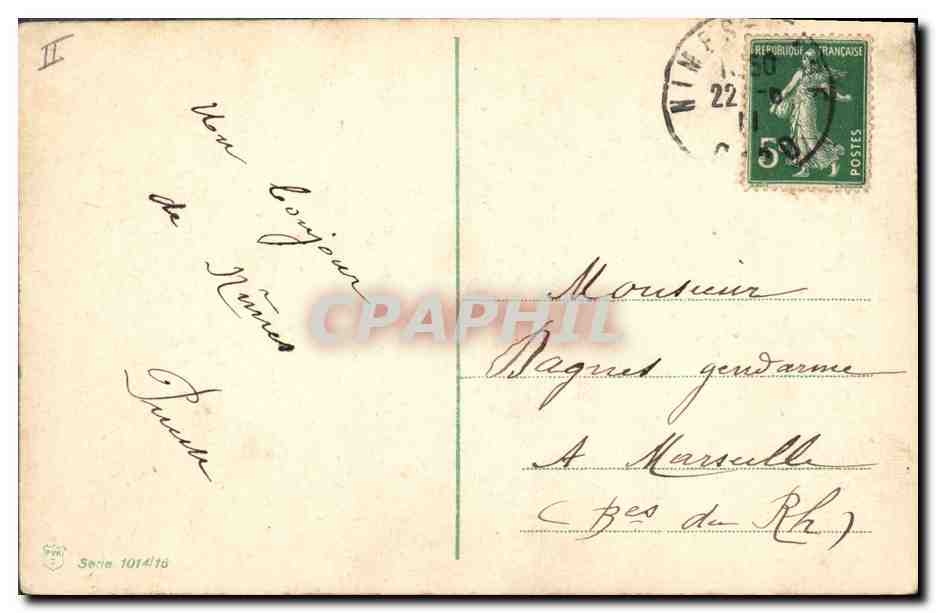 II
Un bonjour
de Nîmes
NIMES
22
11
GARD
REPUBLIQUE FRANÇAISE
5c
POSTES
Monsieur
Bagnes gendarme
A Marseille
(Bes du Rh)
CPAPHIL
PVK
Serie 1014/16